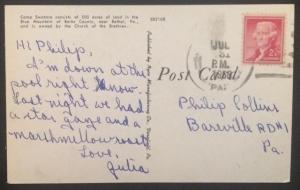 Camp Swatara consists of 200 acres of land in the
Blue Mountain of Berks County, near Bethel, Pa.,
and is owned by the Church of the Brethren.
Hi Philip,
I'm down at the
pool right know.
Last night we had
a star gaze and a
marshmellow roast
Love,
Julia
Post Card
JUL
31
P.M.
PA.
2¢
Philip Collins
Bareville RD#1
Pa.